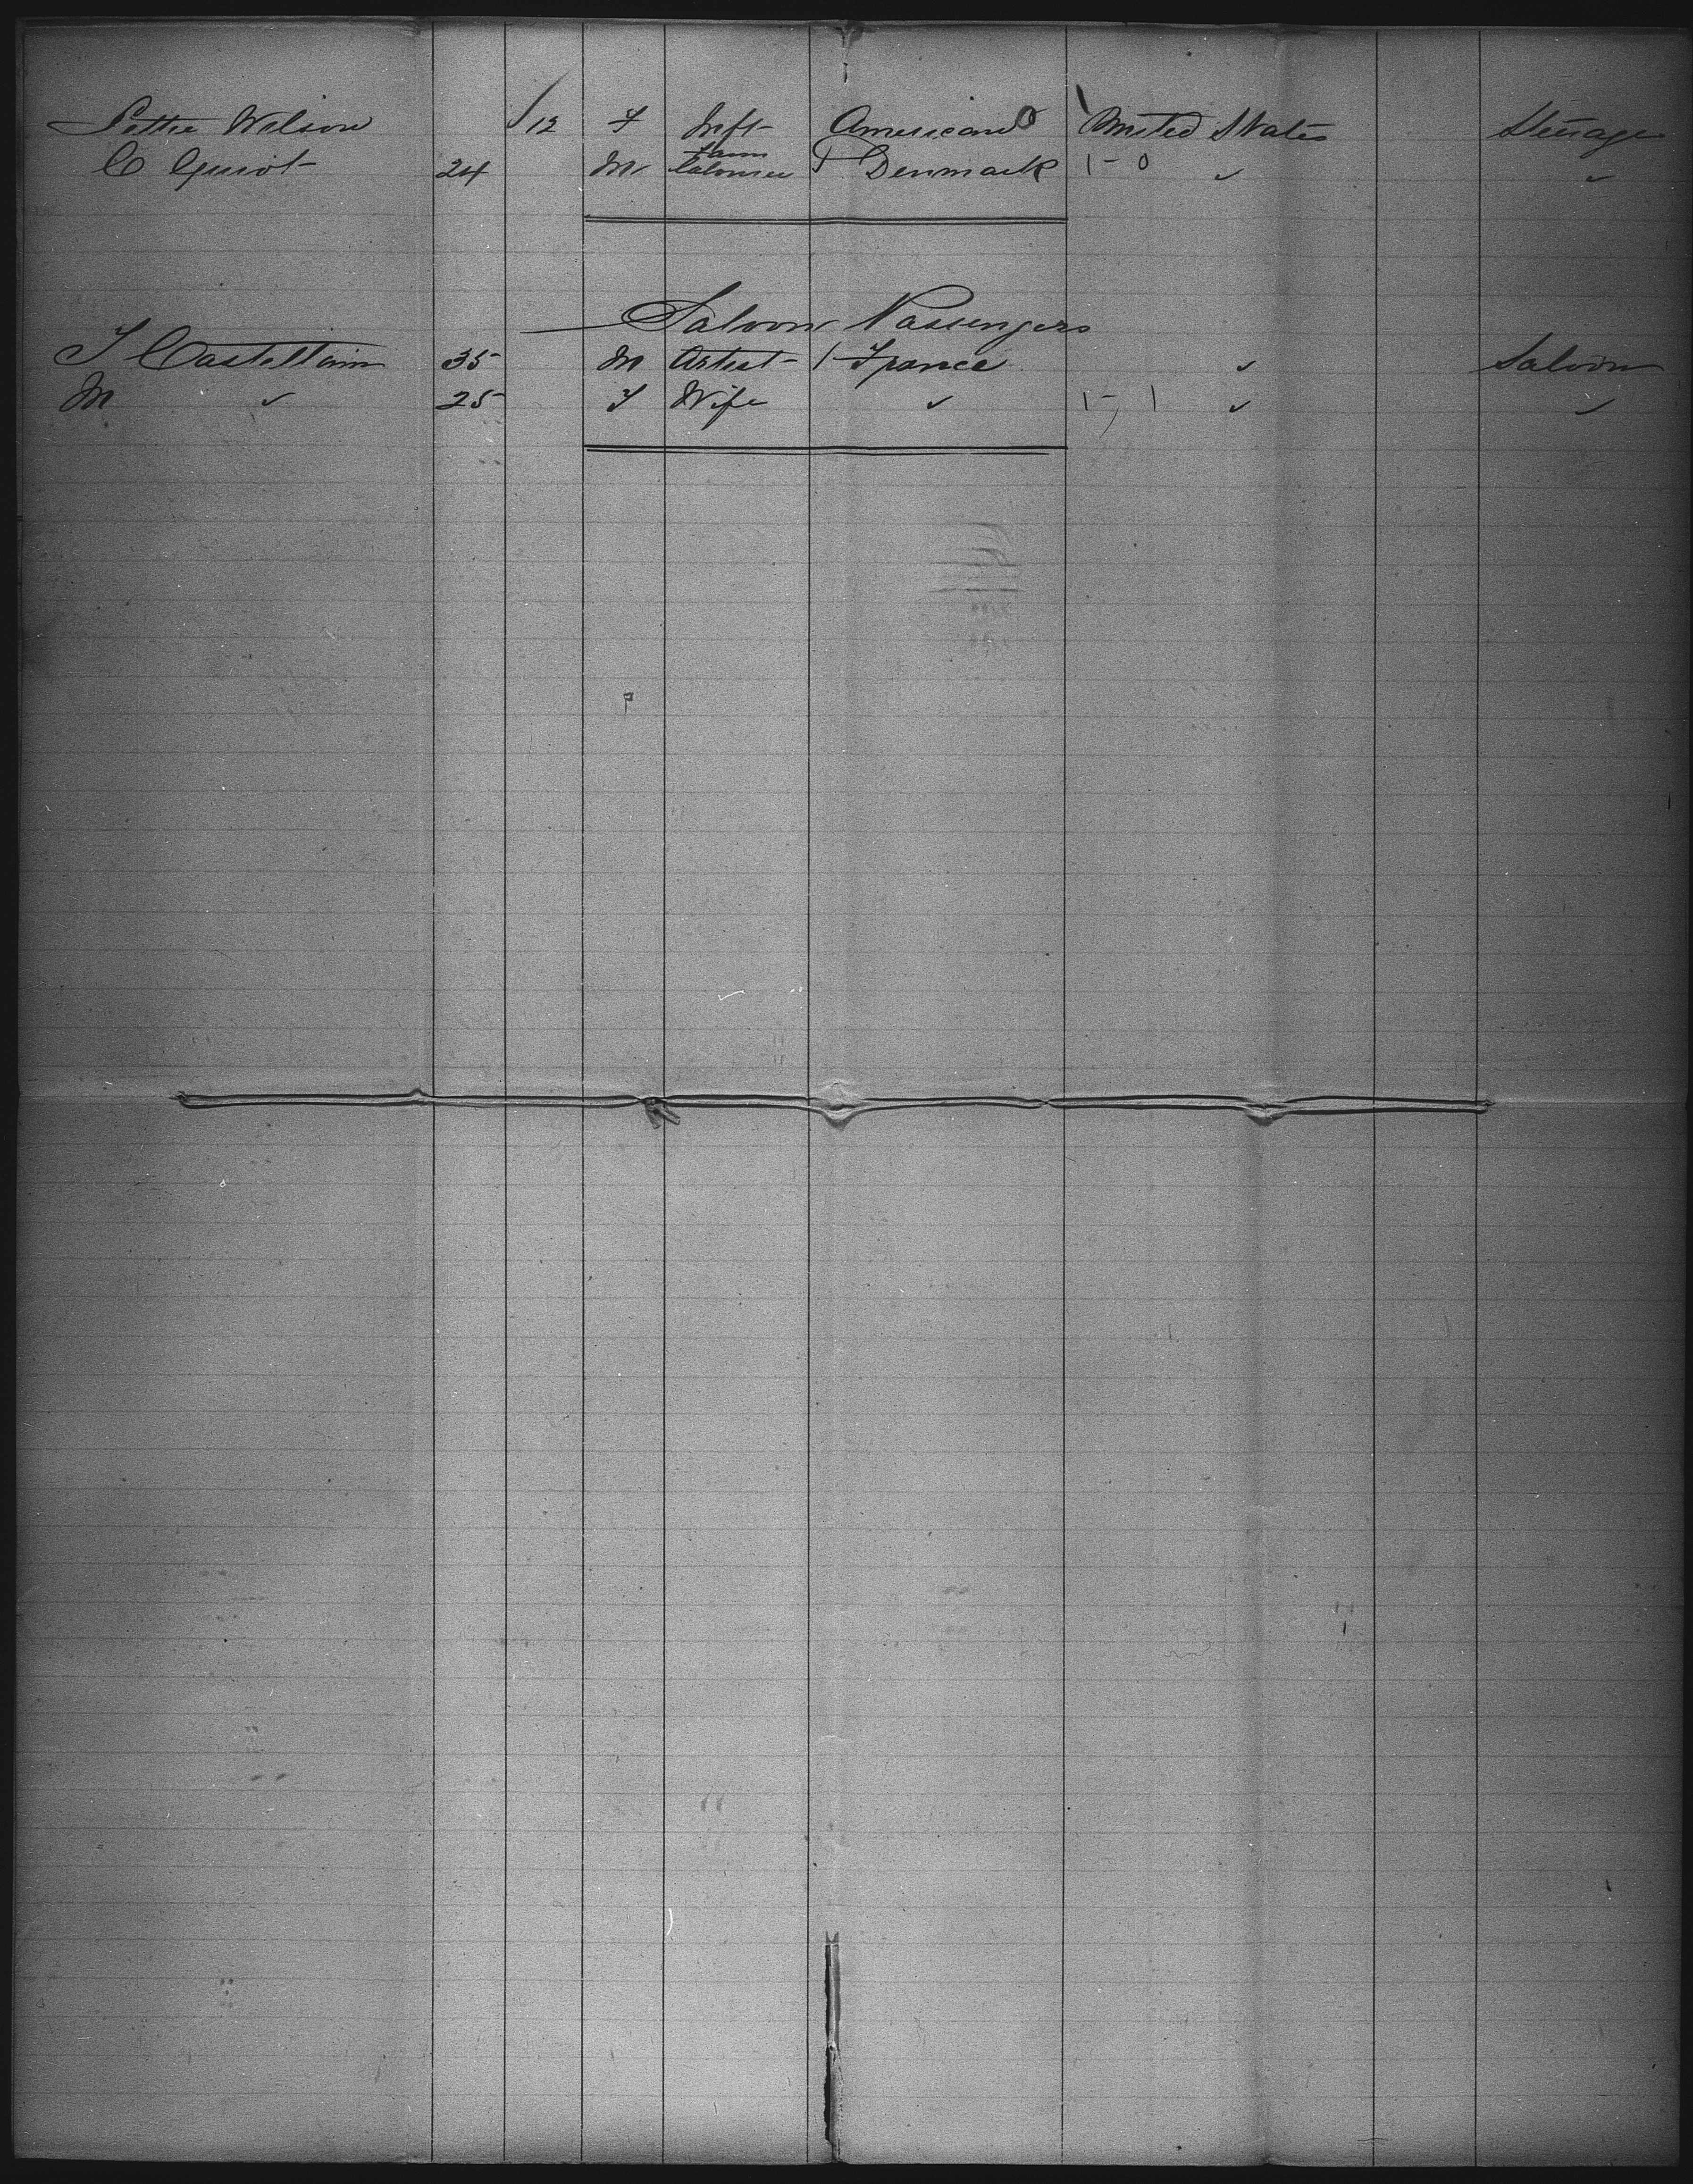 Lettie Wilson /12 F Inft American 0 United States Steerage
Farm
C Quist 24 M Labourer 1 Denmark 1-0 ✓ ✓
Saloon Passengers
J Castellain 35 M Artist 1 France ✓ Saloon
M ✓ 25 F Wife ✓ 1-1 ✓ ✓